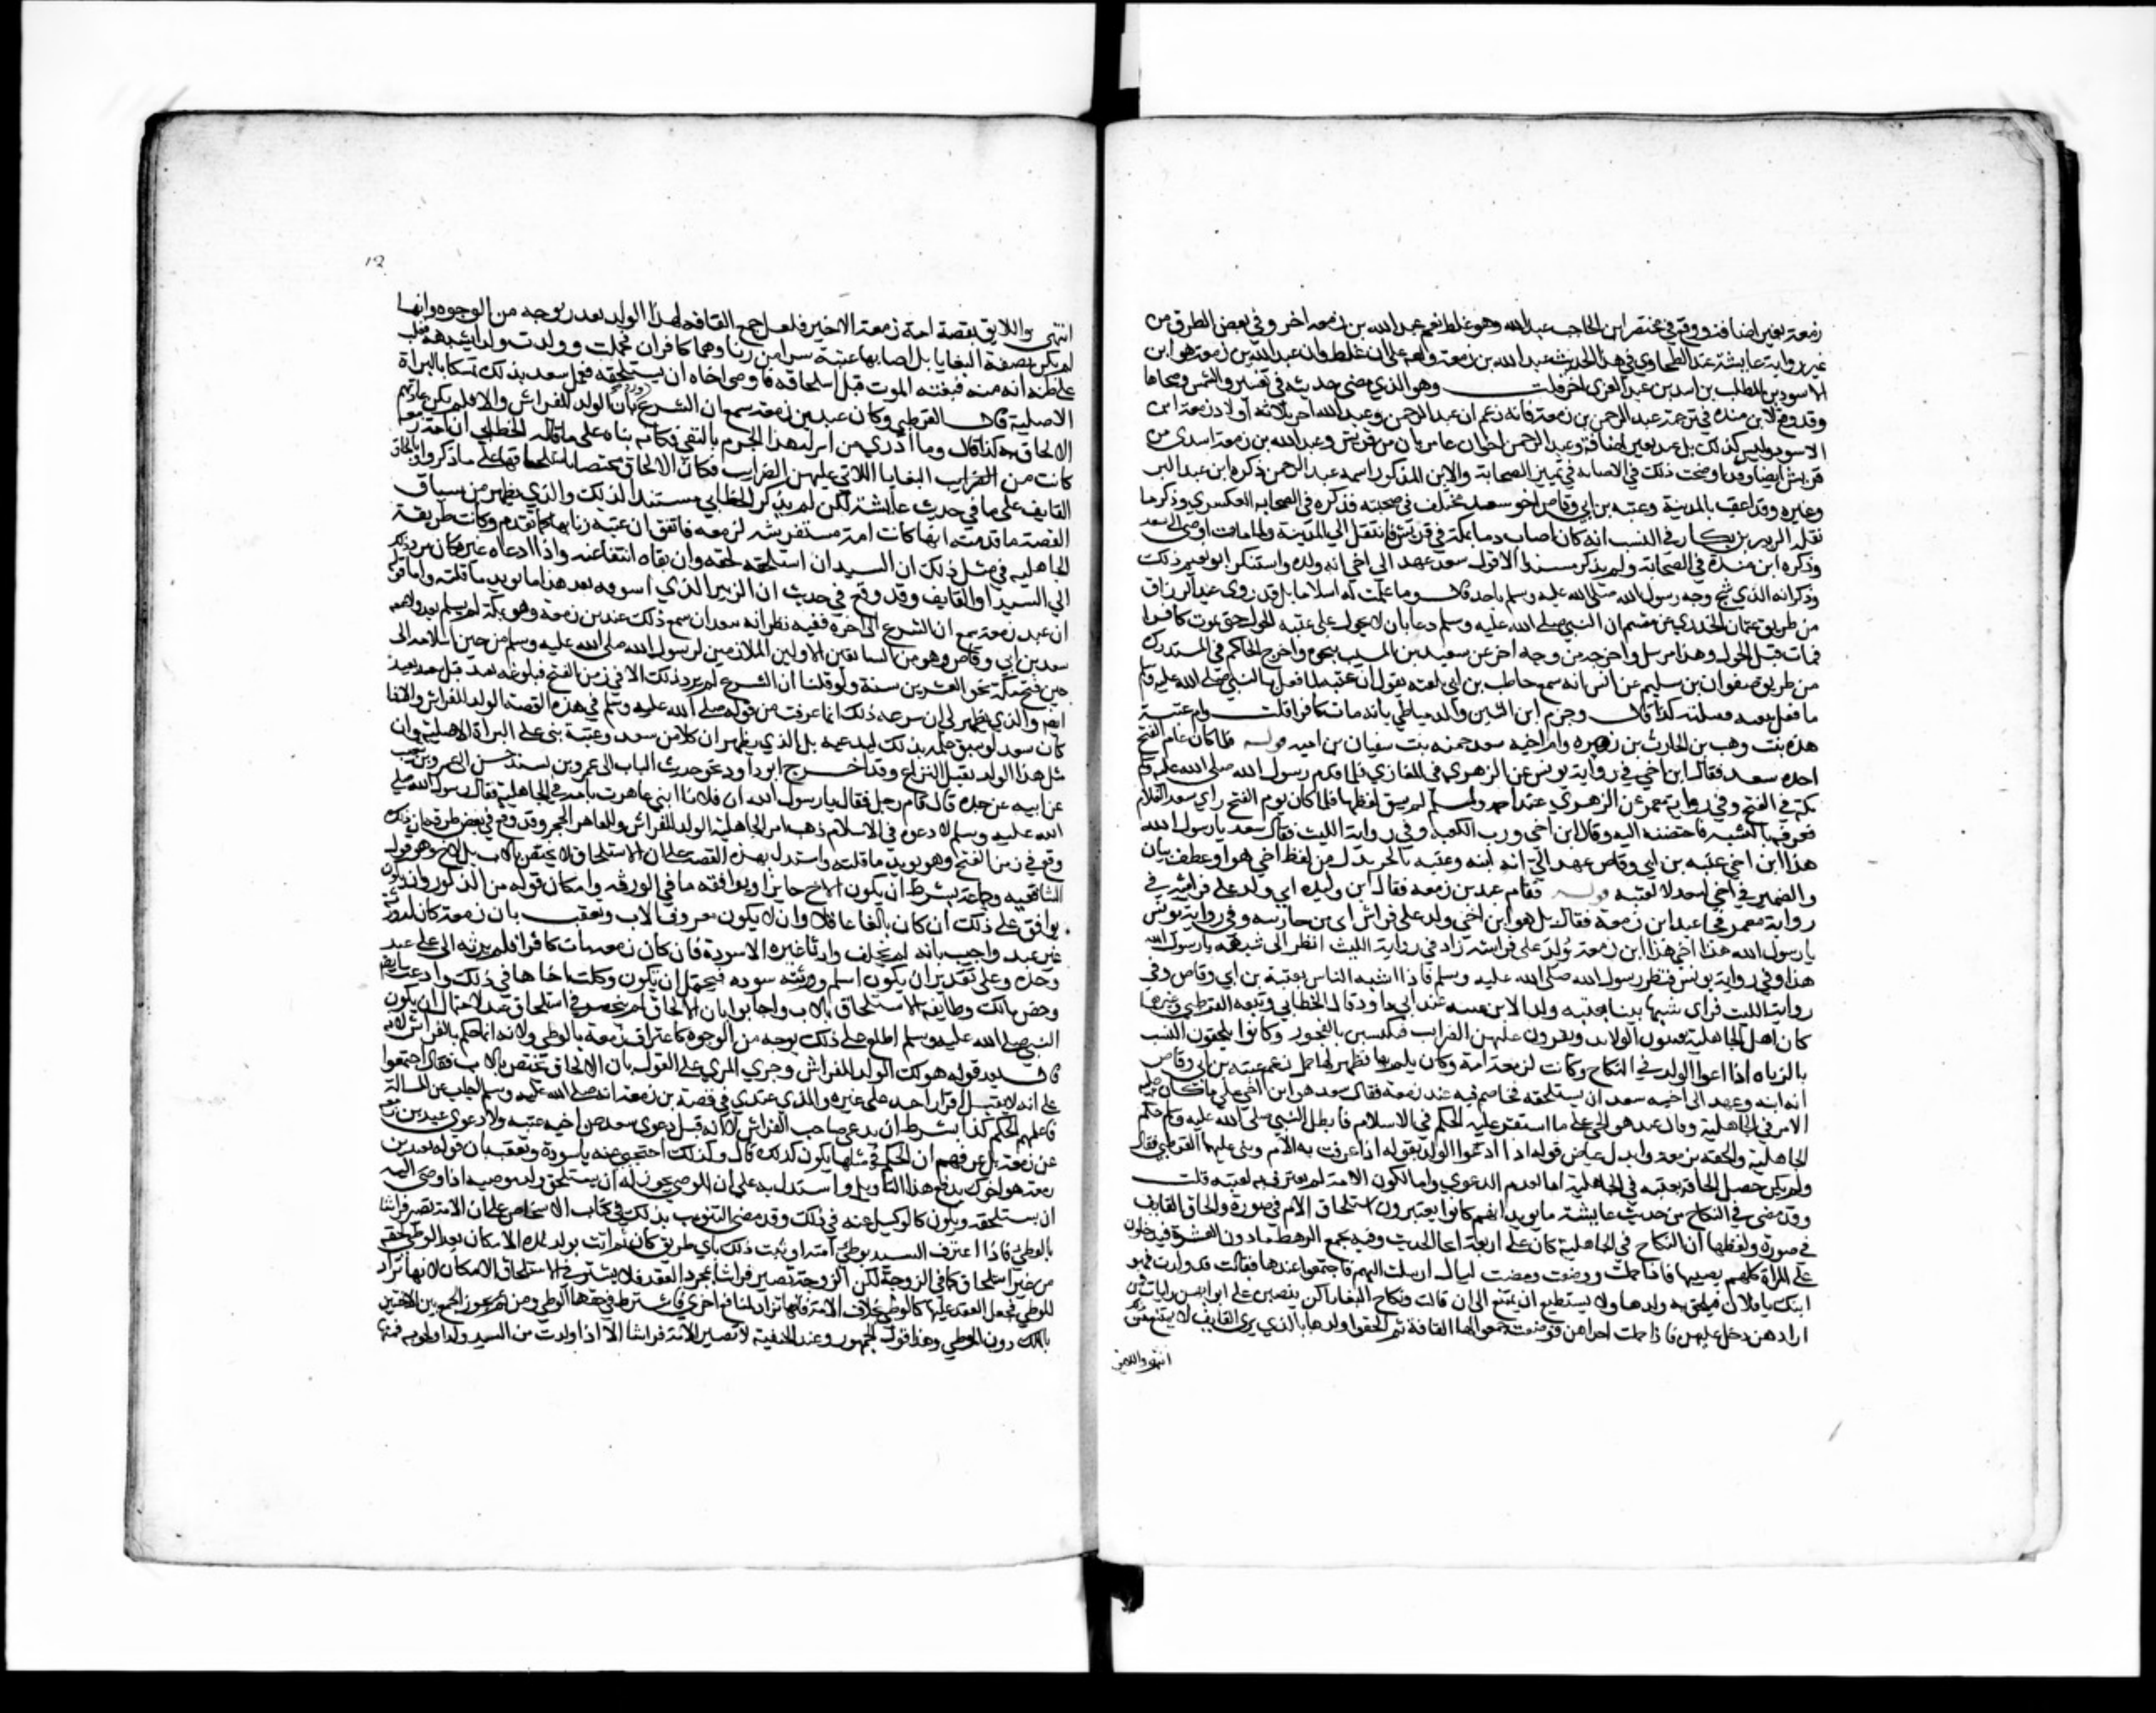 زمعة بغير اضافة ووقع في مختصر ابن الحاجب عبد الله وهو غلط نعم عبد الله بن زمعه اخر وفي بعض الطرق من
غير رواية عايشة عند الطحاوي في هذا الحديث عبد الله بن زمعة ونبه على انه غلط وان عبد الله بن زمعة هو ابن
الاسود بن المطلب بن اسد بن عبد العزى اخر قلت وهو الذي مضى حديثه في تفسير والشمس وضحاها
وقد وقع لابن منده في ترجمة عبد الرحمن بن زمعة فانه زعم ان عبد الرحمن وعبد الله اخوة ثلاثة اولاد زمعة ابن
الاسود وليس كذلك بل عبد بغير اضافة وعبد الرحمن اخوان عامريان من قريش وعبد الله بن زمعة اسدي من
قريش ايضا وقد اوضحت ذلك في الاصابه في تمييز الصحابة والابن المذكور اسمه عبد الرحمن ذكره ابن عبد البر
وغيره وقد اعقب بالمدينة وعتبه بن ابي وقاص اخو سعد مختلف في صحبته فذكره في الصحابه العسكري وذكر ما
نقله الزبير بن بكار في النسب انه كان اصاب دما بمكة في قريش فانتقل الى المدينة ولما مات اوصى الى سعد
وذكره ابن مندة في الصحابة ولم يذكر مستندا الا قول سعد عهد الى اخي انه ولده واستنكر ابو نعيم ذلك
وذكر انه الذي شج وجه رسول الله صلى الله عليه وسلم باحد قال وما علمت له اسلاما بل قد روى عبد الرزاق
من طريق عثمان الجزري عن مقسم ان النبي صلى الله عليه وسلم دعا بان لا يحول على عتبة الحول حتى يموت كافرا
فمات قبل الحول وهذا مرسل واخرجه من وجه اخر عن سعيد بن المسيب بنحوه واخرج الحاكم في المستدرك
من طريق صفوان بن سليم عن انس انه سمع حاطب بن ابي بلتعة يقول ان عتبة لما فعل بالنبي صلى الله عليه وسلم
ما فعل تبعه فقتله كذا قال وجزم ابن التين والدمياطي بانه مات كافرا قلت وام عتبة
هند بنت وهب بن الحارث بن زهرة وام اخيه سعد حمنه بنت سفيان بن اميه قوله فلما كان عام الفتح
اخذه سعد فقال ابن اخي في رواية يونس عن الزهري في المغازي فلما قدم رسول الله صلى الله عليه وسلم
مكة في الفتح وفي رواية معمر عن الزهري عند احمد ولمسلم لم يسق لفظها فلما كان يوم الفتح راي سعد الغلام
فعرفه بالشبه فاحتضنه اليه وقال ابن اخي ورب الكعبة وفي رواية الليث فقال سعد يا رسول الله
هذا ابن اخي عتبه بن ابي وقاص عهد الي انه ابنه وعتبه بالجر بدل من لفظ اخي هو او عطف بيان
والضمير في اخي لسعد لا لعتبه قوله فقام عبد بن زمعه فقال ابن وليده ابي ولد على فراشه في
رواية معمر فجاء عبد ابن زمعة فقال بل هو ابن اخي ولد على فراش ابي من جاريته وفي رواية يونس
يا رسول الله هذا اخي هذا ابن زمعة ولد على فراشه زاد في رواية الليث انظر الى شبهه يا رسول الله
هذا وفي رواية يونس فنظر رسول الله صلى الله عليه وسلم فاذا اشبه الناس بعتبة بن ابي وقاص وفي
رواية الليث فراى شبها بينا بعتبه ولد الابن عيينه عند ابي داود قال الخطابي وتبعه القرطبي وغيرهما
كان اهل الجاهلية يقتنون الولايد ويقررون عليهن الضرايب فيكتسبن بالفجور وكانوا يلحقون النسب
بالزناه اذا ادعوا الولد في النكاح وكانت لزمعة امة وكان يلم بها فظهر لها حمل زعم عتبة بن ابي وقاص
انه ابنه وعهد الى اخيه سعد ان يستلحقه فخاصم فيه عبد بن زمعة فقال سعد هو ابن اخي على ما كان عليه
الامر في الجاهلية وقال عبد هو اخي على ما استقر عليه الحكم في الاسلام فابطل النبي صلى الله عليه وسلم حكم
الجاهلية والحقه بزمعة وابدل عياض قوله اذا ادعوا الولد بقوله اذا اعترفت به الام وبنى عليهما القرطبي فقال
ولم يكن حصل الحاقه بعتبه في الجاهلية اما لعدم الدعوي واما لكون الامة لم تعترف به لعتبه قلت
وقد مضى في النكاح من حديث عايشة ما يويد انهم كانوا يعتبرون استلحاق الام في صورة والحاق القايف
في صورة ولفظها ان النكاح في الجاهلية كان على اربعة انحا الحديث وفيه يجتمع الرهط ما دون العشرة فيدخلون
على المراة كلهم يصيبها فاذا حملت ووضعت ومضت ليال ارسلت اليهم فاجتمعوا عندها فقالت قد ولدت فهو
ابنك يا فلان فيلحق به ولدها ولا يستطيع ان يمتنع الى ان قالت ونكاح البغايا كن ينصبن على ابوابهن رايات فمن
ارادهن دخل عليهن فاذا حملت احداهن فوضعت جمعوا لها القافة ثم الحقوا ولدها بالذي يرى القايف لا يمتنع من ذلك
انتهى واللايق
12
انتهى واللايق بقصة امة زمعة الاخير فلعل جمع القافه لهذا الولد تعذر بوجه من الوجوه وانها
لم تكن بصفة البغايا بل اصابها عتبة سرا من زنا وهما كافران فحملت وولدت ولدا يشبهه فغلب
على ظنه انه منه فبغته الموت قبل استلحاقه فاوصى اخاه ان يستلحقه فعمل سعد بذلك تمسكا بالبراة
الاصلية قال القرطبي وكان عبد بن زمعة سمع ان الشرع ورد بان الولد للفراش والا فلم يكن عادتهم
الالحاق به كذا قال وما ادري من اين له هذا الجزم بالنفي وكانه بناه على ما قاله الخطابي ان امة زمعة
كانت من البغايا اللاتي عليهن الضرايب فكان الالحاق مختصا باستلحاقها على ما ذكر او بالحاق
القايف على ما في حديث عايشة لكن لم يذكر الخطابي مستندا لذلك والذي يظهر من سياق
القصة ما قدمته انها كانت امة مستفرشه لزمعه فاتفق ان عتبة زنا بها كما تقدم وكانت طريقة
الجاهليه في مثل ذلك ان السيد ان استلحقه لحقه وان نفاه انتفا عنه واذا ادعاه غيره كان مرد ذلك
الي السيد او القايف وقد وقع في حديث ابن الزبير الذي اسوقه بعد هذا ما يويد ما قلته واما قوله
ان عبد بن زمعة سمع ان الشرع الى اخره ففيه نظر انه يبعد ان سمع ذلك عبد بن زمعة وهو بمكة لم يسلم بعد ولا يسمعه
سعد بن ابي وقاص وهو من السابقين الاولين الملازمين لرسول الله صلى الله عليه وسلم من حين اسلامه الى
حين فتح مكة نحو العشرين سنة ولو قلنا ان الشرع لم يرد بذلك الا في زمن الفتح فبلوغه لعبد قبل سعد بعيد
ايضا والذي يظهر لي ان شرعية ذلك انما عرفت من قوله صلى الله عليه وسلم في هذه القصة الولد للفراش والا فما
كان سعد لو سبق علمه بذلك ليدعيه بل الذي يظهر ان كلا من سعد وعتبة بنى على البراة الاصلية وان
مثل هذا الولد يقبل النزاع وقد اخرج ابو داود نحو حديث الباب الى عمرو بن شعيب بسند حسن
عن ابيه عن جده قال قام رجل فقال يا رسول الله ان فلانا ابني عاهرت بامه في الجاهلية فقال رسول الله صلى
الله عليه وسلم لا دعوة في الاسلام ذهب امر الجاهلية الولد للفراش وللعاهر الحجر وقد وقع في بعض طرقه ان ذلك
وقع في زمن الفتح وهو يويد ما قلته واستدل بهذه القصة على ان الاستلحاق لا يختص بالاب بل للاخ وهو قول
الشافعيه وجماعة بشرط ان يكون الاخ حايزا او يوافقه باقي الورثه وامكان كونه من المذكور وان
يوافق على ذلك ان كان بالغا عاقلا وان لا يكون معروف الاب وتعقب بان زمعة كان له ورثة
غير عبد واجيب بانه لم يخلف وارثا غيره الا سودة فان كان زمعه مات كافرا فلم يرثه الا عبد
وحده وعلى تقدير ان يكون اسلم وورثته سوده فيحتمل ان يكون وكلت اخاها في ذلك وادعت ايضا
وخص مالك وطايفة الاستلحاق بالاب واجابوا بان الالحاق لم ينحصر في استلحاق عبد لاحتمال ان يكون
النبي صلى الله عليه وسلم اطلع على ذلك بوجه من الوجوه كاعتراف زمعة بالوطي ولانه انما حكم بالفراش لانه
قال بعد قوله هو لك الولد للفراش وجرى المزي على القول بان الالحاق يختص بالاب فقال اجمعوا
على انه لا يقبل اقرار احد على غيره والذي عندي في قصة بن زمعة انه صلى الله عليه وسلم اجاب عن المسالة
فاعلمهم الحكم كذا بشرط ان يدعي صاحب الفراش لا انه قبل دعوى سعد عن اخيه عتبه ولا دعوى عبد بن زمعة
عن زمعة بل عرفهم ان الحكم في مثلها يكون كذلك قال ولذلك احتجبي منه يا سودة وتعقب بان قوله لعبد بن
زمعة هو اخوك يدفع هذا التاويل واستدل به على ان الوصي يجوز له ان يستلحق ولد موصيه اذا اوصى اليه
ان يستلحقه ويكون كالوكيل عنه في ذلك وقد مضى التبويب بذلك في كتاب الاشخاص على ان الامة تصير فراشا
بالوطئ فاذا اعترف السيد بوطئ امته او ثبت ذلك باي طريق كان ثم اتت بولد لمدة الامكان بعد الوطي لحقه
من غير استلحاق كما في الزوجة لكن الزوجة تصير فراشا بمجرد العقد فلا يشترط في الاستلحاق الا الامكان لانها تراد
للوطي فجعل العقد عليها كالوطي بخلاف الامة فانها تراد لمنافع اخرى فاشترط في حقها الوطي ومن ثم يجوز الجمع بين الاختين
بالملك دون الوطي وهذا قول الجمهور وعند الحنفية لا تصير الامة فراشا الا اذا ولدت من السيد ولدا ولحق به فمهما